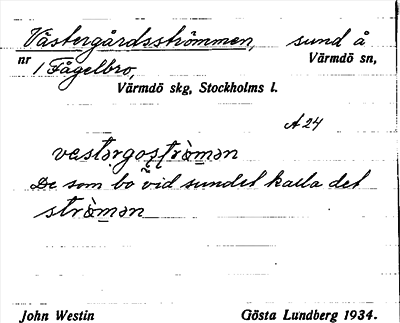 Västergårdsströmmen, sund å
nr 1 Fågelbro, Värmdö sn,
Värmdö skg, Stockholms l.
A 24
västərgoștrö̀mən
De som bo vid sundet kalla det
strö̀mən
John Westin Gösta Lundberg 1934.